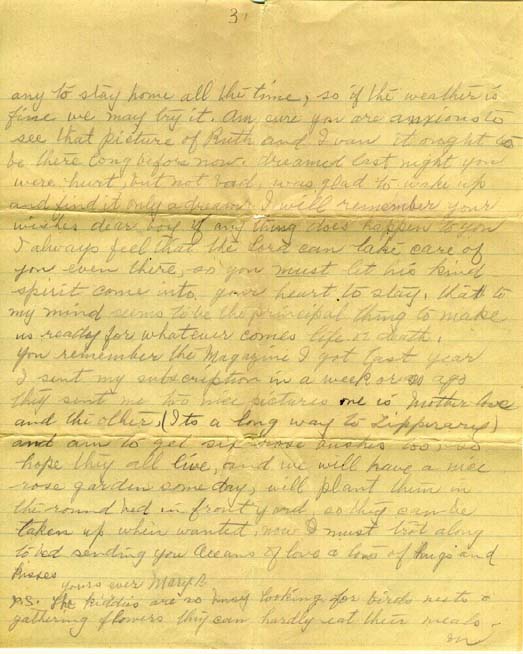 3
any to stay home all the time, so if the weather is
fine we may try it. Am sure you are anxious to
see that picture of Ruth and I van it ought to
be there long before now. dreamed last night you
were hurt, but not bad, was glad to wake up
and find it only a dream. I will remember your
wishes dear boy if any thing does happen to you
I always feel that the Lord can take care of
you even there, so you must let his kind
spirit come into your heart to stay. that to
my mind seems to be the principal thing to make
us ready for whatever comes life or death.
you remember the Magazine I got last year
I sent my subscription in a week or so ago
they sent me two nice pictures one is Mother love
and the other, (Its a long way to Tipperary)
and am to get six rose bushes too
hope they all live, and we will have a nice
rose garden some day, will plant them in
the round bed in front yard, so they can be
taken up when wanted, now I must trot along
to bed sending you Oceans of love & tons of hugs and
kisses
yours ever Mary R.
P.S. The kiddis are so busy looking for birds nests &
gathering flowers they can hardly eat their meals.